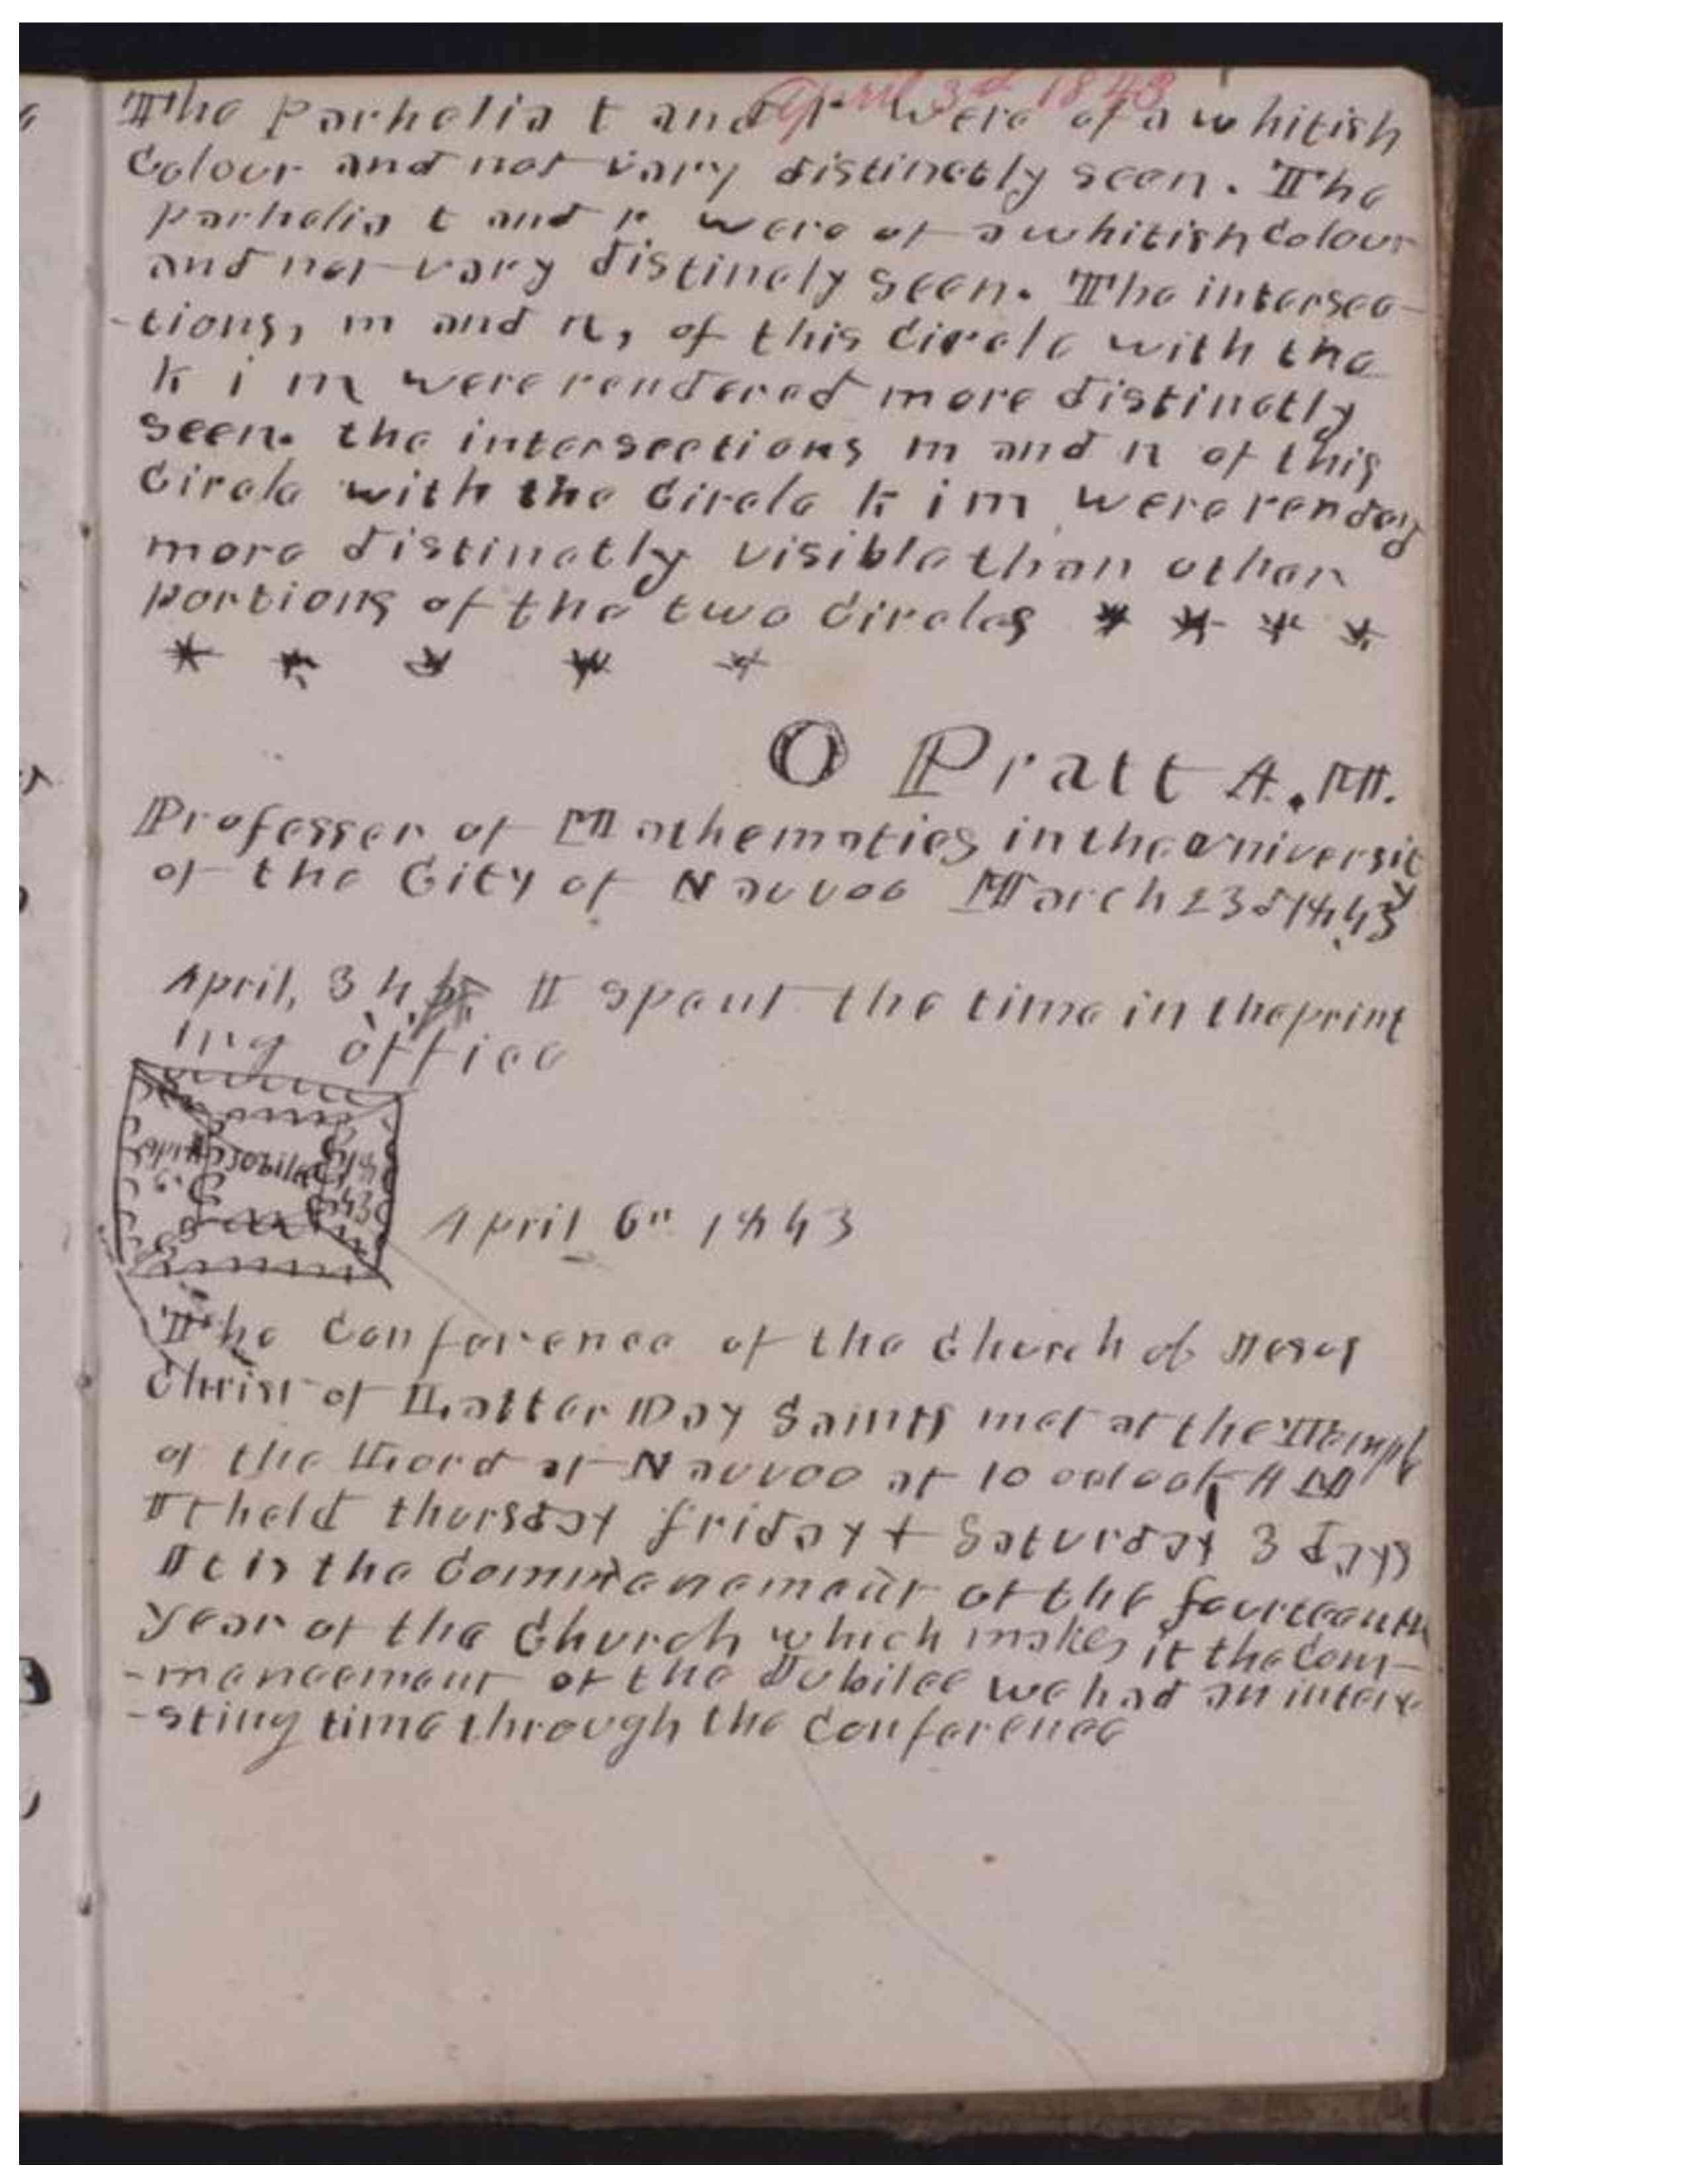 April 3d 1843
The Parhelia t and r were of a whitish
Colour and not vary distinctly seen. The
parhelia t and r were of a whitish Colour
and not vary distincly seen. The intersec-
-tions, m and n, of this Circle with the
k i m were rendered more distinctly
seen. the intersections m and n of this
Circle with the Circle k i m were renderd
more distinctly visible than other
portions of the two Circles * * * *
* * * * *
O Pratt A. M.
Professer of Mathematics in the University
of the City of Nauvoo March 23d 1843
April, 3 4, I spent the time in the print
ing office
April 6. Jubilee 1843
April 6th 1843
The Conference of the Church of Jesus
Christ of Latter Day Saints met at the Temple
of the Lord at Nauvoo at 10 oclock A M
It held thursday friday + Saturday 3 days
It is the Commencement of the fourteenth
year of the Church which makes it the Com-
-mencement of the Jubilee we had an intere
-sting time through the Conference